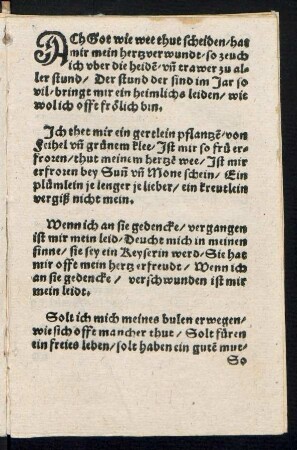 ACh Got wie wee thut scheiden/hat
mir mein hertz verwundt/so zeuch
ich vber die heidē/vñ trawer zu al-
ler stund/ Der stund der sind im Jar so
vil/bringt mir ein heimlichs leiden/ wie
wol ich offt frölich bin.
Ich thet mir ein gertlein pflantzē/von
Feihel vñ grünem klee/Ist mir so frü er-
froren/thut meinem hertzē wee/Ist mir
erfroren bey Suñ vñ Mone schein/ Ein
plümlein je lenger je lieber/ ein kreutlein
vergiß nicht mein.
Wenn ich an sie gedencke/ vergangen
ist mir mein leid/Deucht mich in meinen
sinne/ sie sey ein Keyserin werd/Sie hat
mir offt mein hertz erfreudt/ Wenn ich
an sie gedencke/ verschwunden ist mir
mein leidt.
Solt ich mich meines bulen erwegen/
wie sich offt mancher thut/ Solt füren
ein freies leben/solt haben ein gutē mut-
So